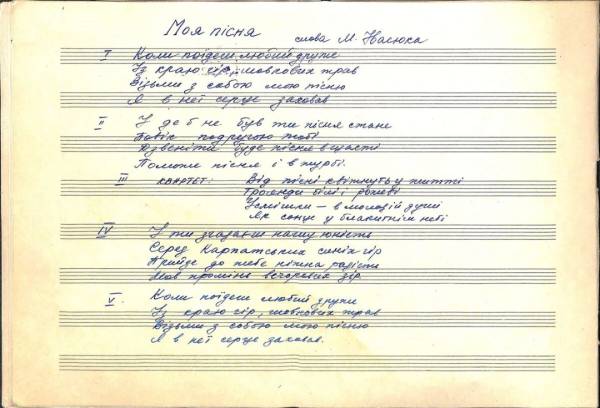 Моя пісня
слова М. Насюка
I Коли поїдеш любий друже
Із краю гір, шовкових трав
Візьми з собою мою пісню
Я в неї серце заховав
II І де б не був ти пісня стане
Повік подругою тобі
Дзвеніти буде пісня в щасті
Поможе пісня і в журбі.
III квартет: Від пісні квітнуть у житті
Троянди білі і рожеві
Усмішки – в молодій душі
Як сонце у блакитнім небі
IV І ти згадаєш нашу юність
Серед Карпатських синіх гір
Прийде до тебе ніжна радість
Мов проміння вечорових зір
V. Коли поїдеш любий друже
Із краю гір, шовкових трав
Візьми з собою мою пісню
Я в неї серце заховав.